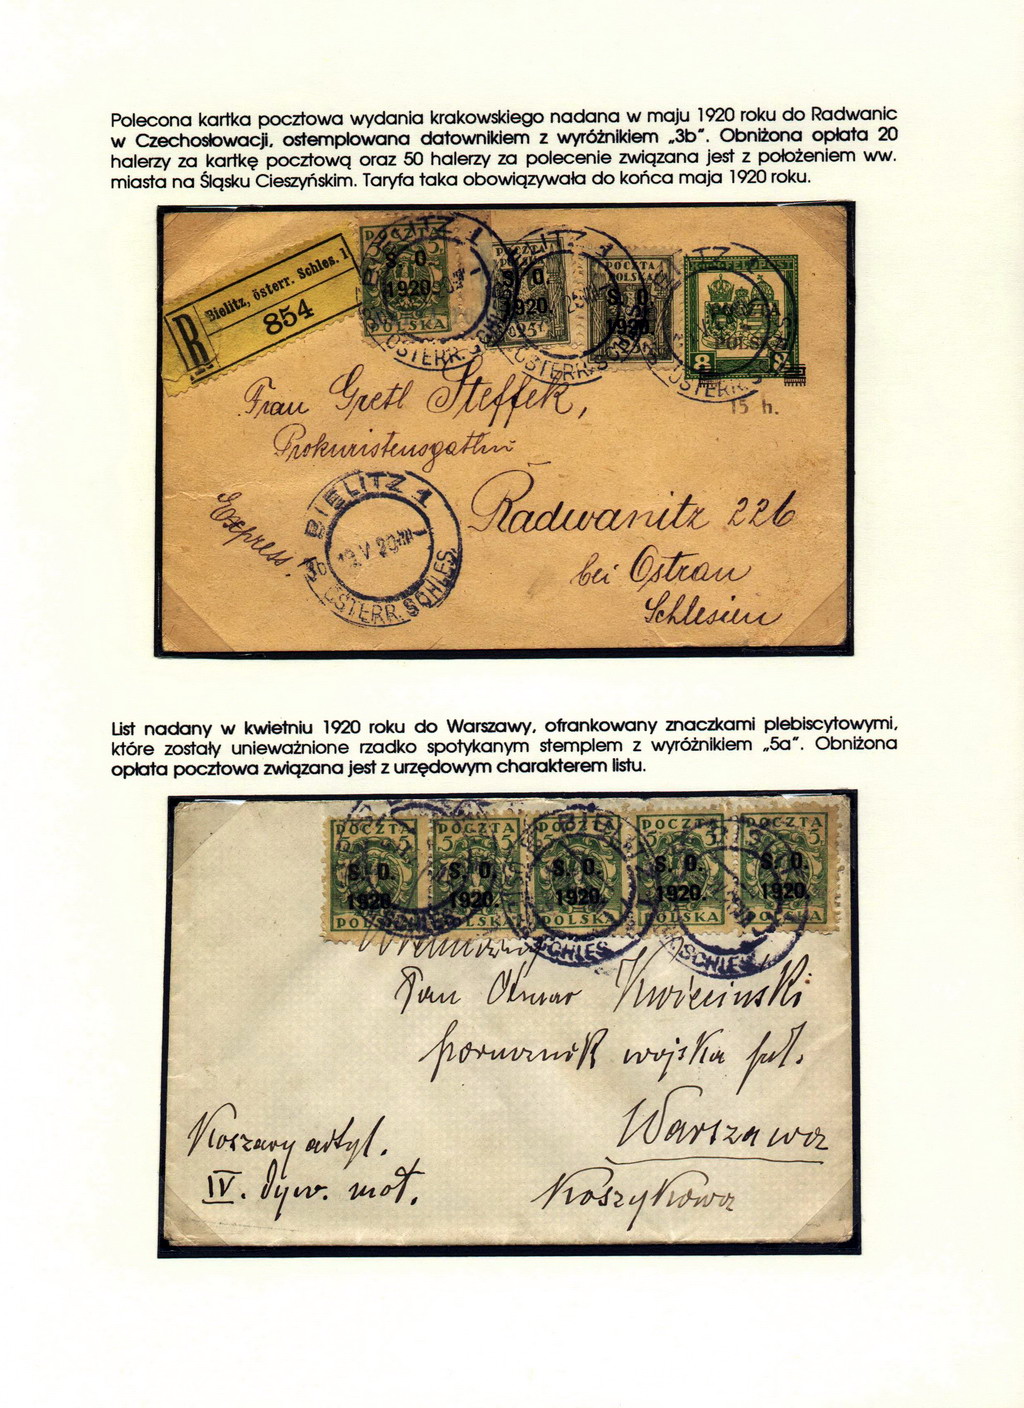 Polecona kartka pocztowa wydania krakowskiego nadana w maju 1920 roku do Radwanic
w Czechosłowacji, ostemplowana datownikiem z wyróżnikiem „3b”. Obniżona opłata 20
halerzy za kartkę pocztową oraz 50 halerzy za polecenie związana jest z położeniem ww.
miasta na Śląsku Cieszyńskim. Taryfa taka obowiązywała do końca maja 1920 roku.
R
Bielitz, österr. Schles. 1
854
POCZTA
5 5
S. O.
1920.
POLSKA
POCZTA
POLSKA
S. O.
1920.
25
POCZTA
POLSKA
S. O.
1920.
25
POCZTA
POLSKA
8
15 h.
Frau Gretl Steffek,
Prokuristensgattin
Radwanitz 226
bei Ostrau
Schlesien
Express.
BIELITZ 1
3b
ÖSTERR. SCHLES.
List nadany w kwietniu 1920 roku do Warszawy, ofrankowany znaczkami plebiscytowymi,
które zostały unieważnione rzadko spotykanym stemplem z wyróżnikiem „5a”. Obniżona
opłata pocztowa związana jest z urzędowym charakterem listu.
POCZTA POCZTA POCZTA POCZTA POCZTA
5 5 5 5 5 5 5 5 5 5
S. O. S. O. S. O. S. O. S. O.
1920. 1920. 1920. 1920. 1920.
POLSKA POLSKA POLSKA POLSKA POLSKA
SCHLES. SCHLES. SCHLES.
Pan Otmar Kwieciński
porucznik wojska pol.
Warszawa
Koszykowa
Koszary artyl.
IV. Dyw. mot.